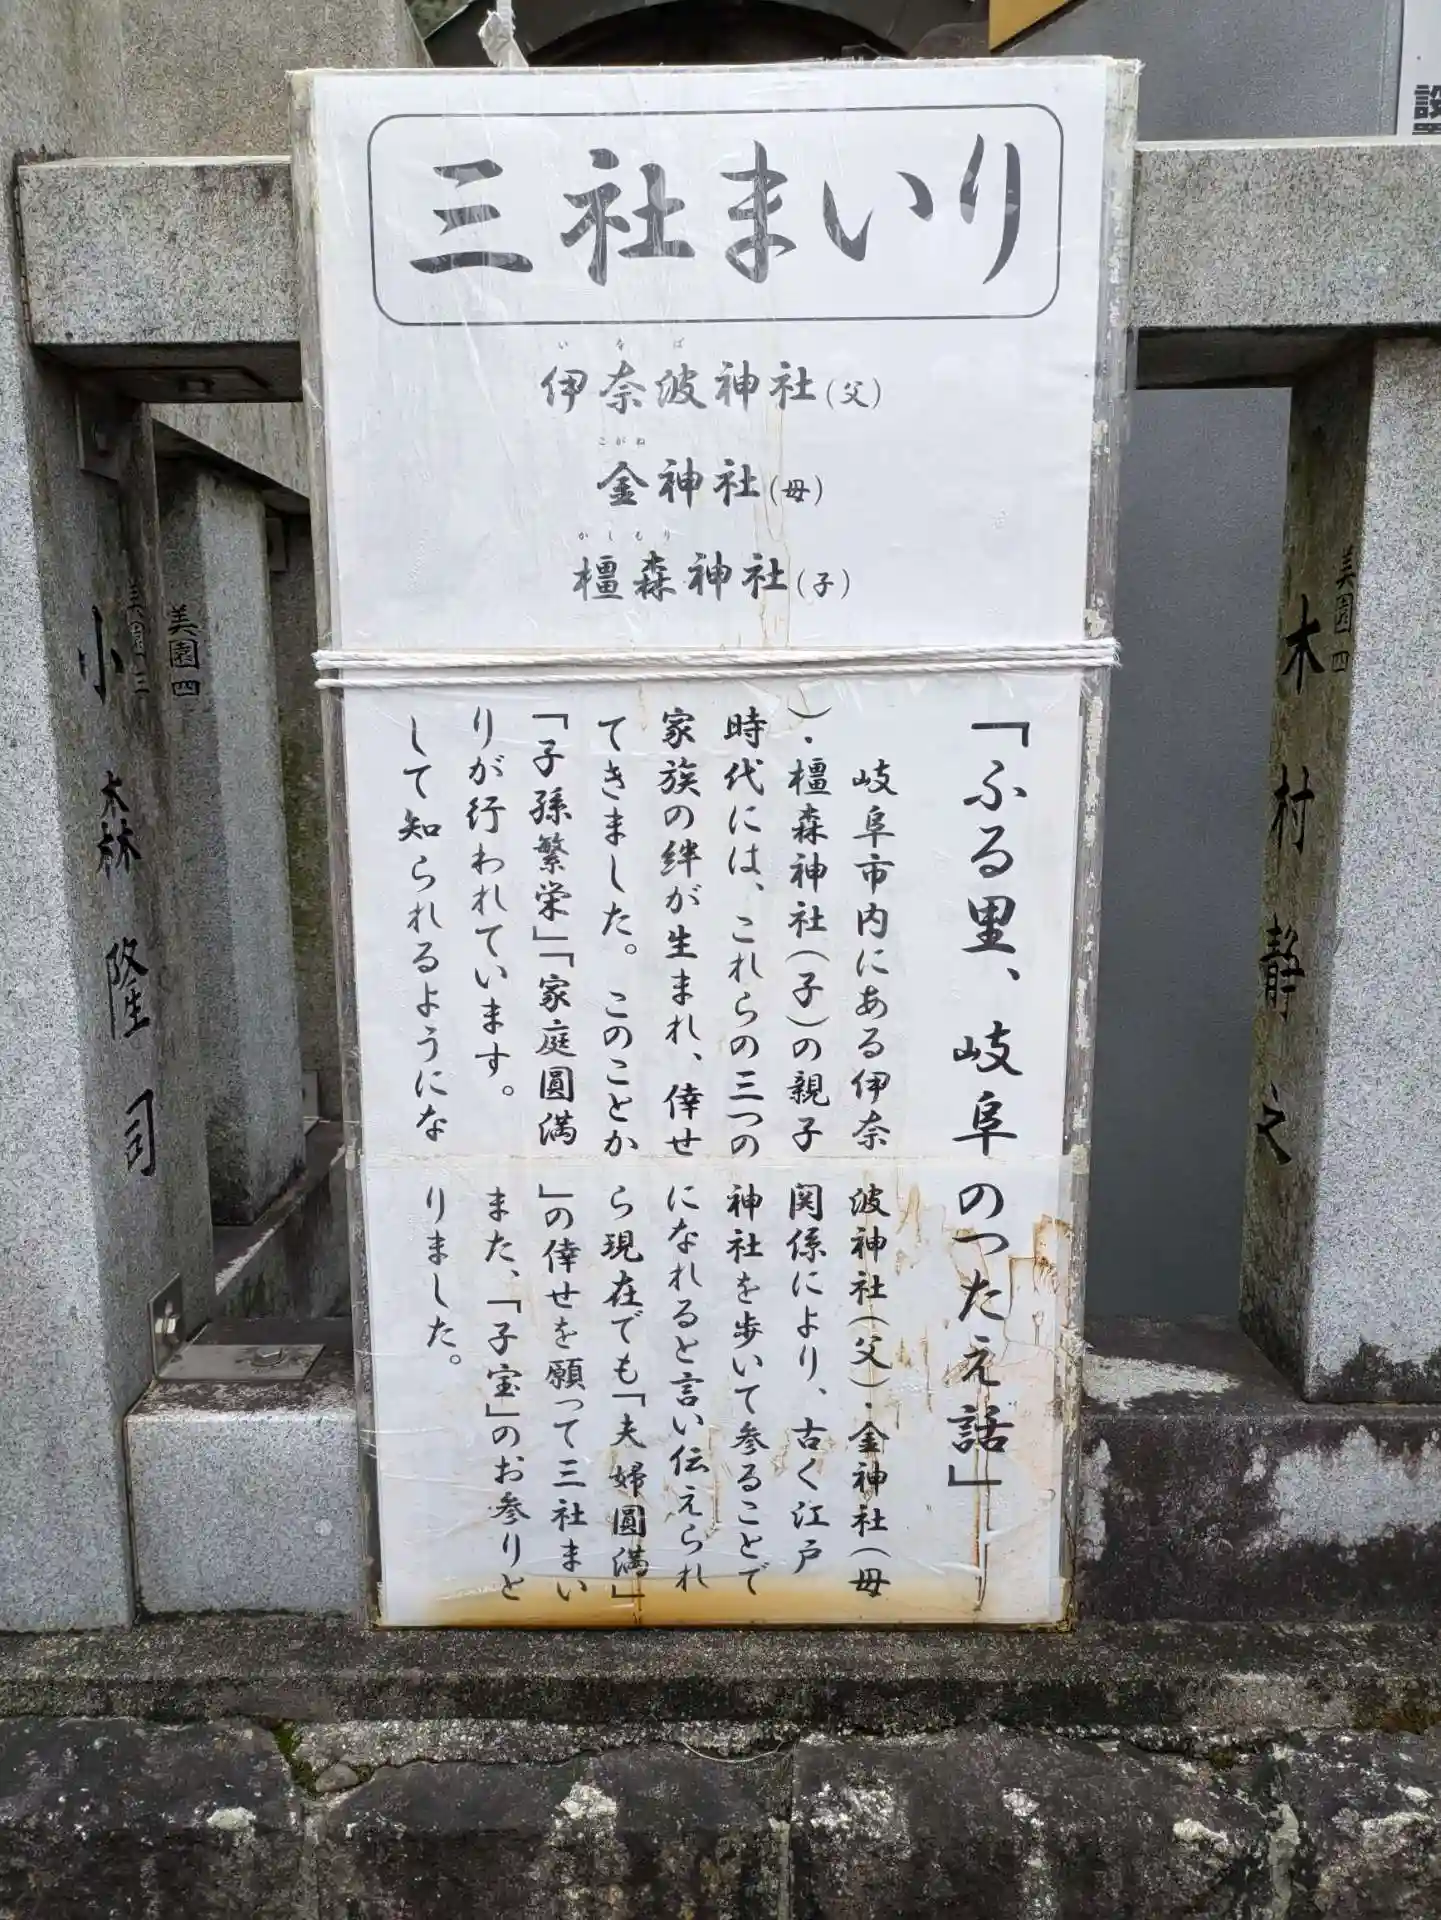 三社まいり
いなば
伊奈波神社(父)
こがね
金神社(母)
かしもり
橿森神社(子)
「ふる里、岐阜のつたえ話」
岐阜市内にある伊奈波神社(父)・金神社(母
)・橿森神社(子)の親子関係により、古く江戸
時代には、これらの三つの神社を歩いて参ることで
家族の絆が生まれ、倖せになれると言い伝えられ
てきました。このことから現在でも「夫婦圓満」
「子孫繁栄」「家庭圓満」の倖せを願って三社まい
りが行われています。また、「子宝」のお参りと
して知られるようになりました。
美園四
木村静之
美園四
美園三
小森隆司
設置